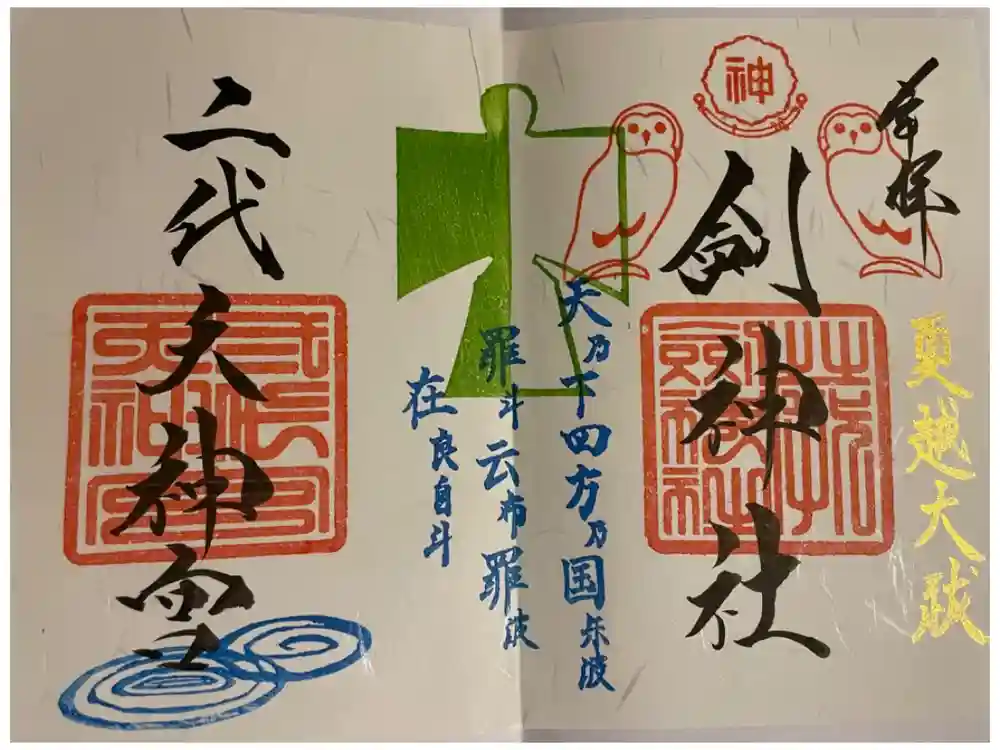 奉拝
夏越大祓
神
剣神社
天乃下四方乃国尓波
罪斗云布罪波
在良自斗
二代天神宮